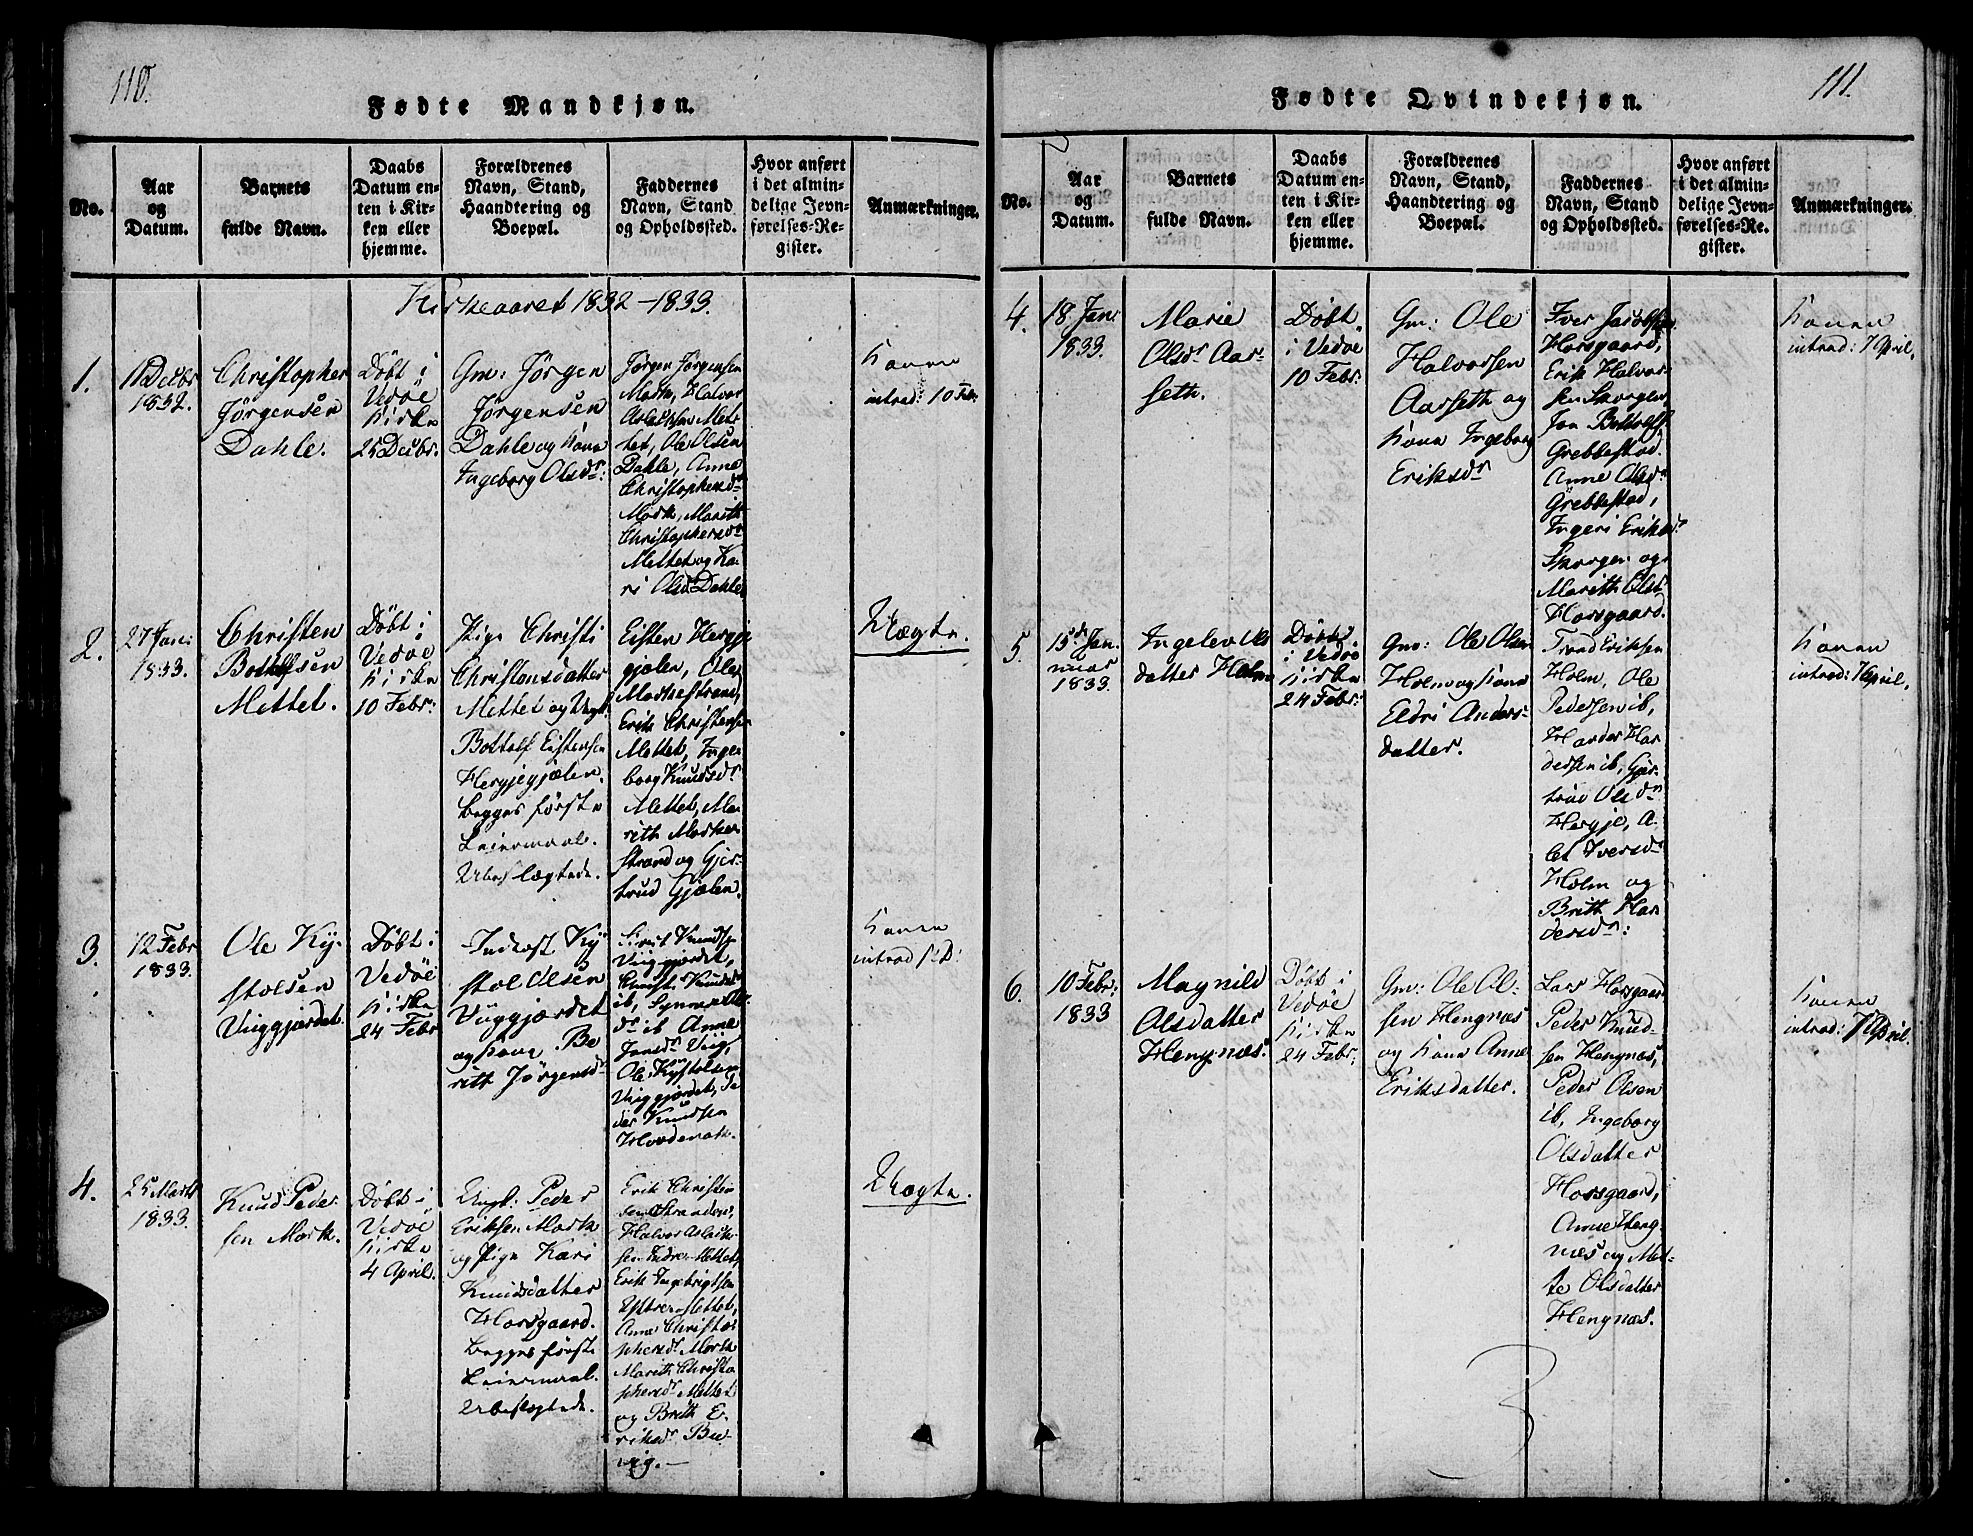 110.
Fødte Mandkjøn.
No.
Aar
og
Datum.
Barnets
fulde Navn.
Daabs
Datum en-
ten i Kir-
ken eller
hjemme.
Forældrenes
Navn, Stand,
Haandtering og
Boepæl.
Faddernes
Navn, Stand
og Opholdssted.
Hvor anført
i det almin-
delige Jevn-
førelses-Re-
gister.
Anmærkninger.
Kirkeaaret 1832-1833.
1.
11 Decbr
1832.
Christopher
Jørgensen
Dahle.
Døbt i
Vedøe
Kirke
25 Decbr.
Gm: Jørgen
Jørgensen
Dahle og Kone
Ingeborg Olsdr:
Jørgen Jørgensen
Mork, Halvor
Aslaksen Met-
tet, Ole Olsen
Dahle, Anne
Christophersdr
Mork, Marith
Christophersdr
Mettet og Ka-
ri Olsdr Dahle
Konen
introd: 10 Febr.
2.
27 Jan:
1833.
Christen
Bottolfsen
Mettet.
Døbt i
Vedøe
Kirke
10 Febr:
Pige Christi
Christensdatter
Mettet og Ungk:
Bottolf Eistensen
Hergjegjølen.
begges første
Leiermaal.
Ubeslægtede.
Eisten Hergje
gjølen, Ole
Morkestrand,
Erik Christensen
Mettet, Inge-
borg Knudsdr
Mettet, Ma-
rith Morke-
strand og Gjer-
trud Gjølen.
Uægte.
3.
12 Febr
1833.
Ole Ky-
stolsen
Viiggjærdet.
Døbt i
Vedøe
Kirke
24 Febr
Inderst Ky-
stol Olsen
Viiggjærdet
og Kone Be-
ritt Jørgensdr
Sivert Knudsen
Viiggjærdet,
Knudsdr
ib, Synnev
dr ib Anne
Jensdr Viig,
Ole Kystolsen
Viiggjærdet, Pe-
der Knudsen
Hovdenak.
Konen
introd s: D:
4.
25 Marts
1833.
Knud Peder
sen Mork.
Døbt i
Vedøe
Kirke
4 April.
Ungk: Peder
Eriksen Mork
og Pige Kari
Knudsdatter
Horsgaard.
begges første
Leiermaal.
Ubeslægtede.
Erik Christen
sen Stranden,
Halvor Aslak-
sen Indre-Mettet,
Erik Ingebrigtsen
Yttre-Mettet,
Anne Christo-
phersdr Mork
Marith Christo
phersdr Mettet
og Brith E-
riksdr Bu-
viig.
Uægte.
111.
Fødte Qvindekjøn.
No.
Aar
og
Datum.
Barnets
fulde Navn.
Daabs
Datum en-
ten i Kir-
ken eller
hjemme.
Forældrenes
Navn, Stand,
Haandtering og
Boepæl.
Faddernes
Navn, Stand
og Opholdssted.
Hvor anført
i det almin-
delige Jevn-
førelses-Re-
gister.
Anmærkninger.
4.
18 Jan:
1833.
Marie
Olsdr Aar-
seth.
Døbt
i Vedøe
10 Febr:
Gm: Ole
Halvorsen
Aarseth og
Kone Ingeborg
Eriksdr
Iver Jacobsen
Horsgaard,
Erik Halvor-
sen Skorgen
Jon Bottolfs.
Grebbestad.
Anne Olsdr
Grebbestad,
Ingeri Eriksdr
Skorgen og
Marith Olsdr
Horsgaard.
Konen
introd: 7 April.
5.
15de Jan-
nuar
1833.
Ingelev Ols
datter Holm
Døbt
i Vedøe
Kirke
24 Febr:
Gm: Ole Olsen
Holm og Kone
Eldri Anders-
datter.
Trond Eriksen
Holm, Ole
Pedersen ib,
Harder Har-
dersen ib, Gjer-
trud Olsdr
Hergje, A-
let Iversdr
Holm og
Britth Har-
dersdr:
Konen
introd: 7 April.
6.
10 Febr:
1833
Magnild
Olsdatter
Hengnæs.
Døbt i
Vedøe
Kirke
24 Febr:
Gm: Ole Ol-
sen Hengnæs
og Kone Anne
Eriksdatter.
Lars Horsgaard
Peder Knud-
sen Hengnæs,
Peder Olsen
ib, Ingeborg
Olsdatter
Horsgaard,
Anne Heng-
næs og Met-
te Olsdatter
Hengnæs.
Konen
introd: 7 April.